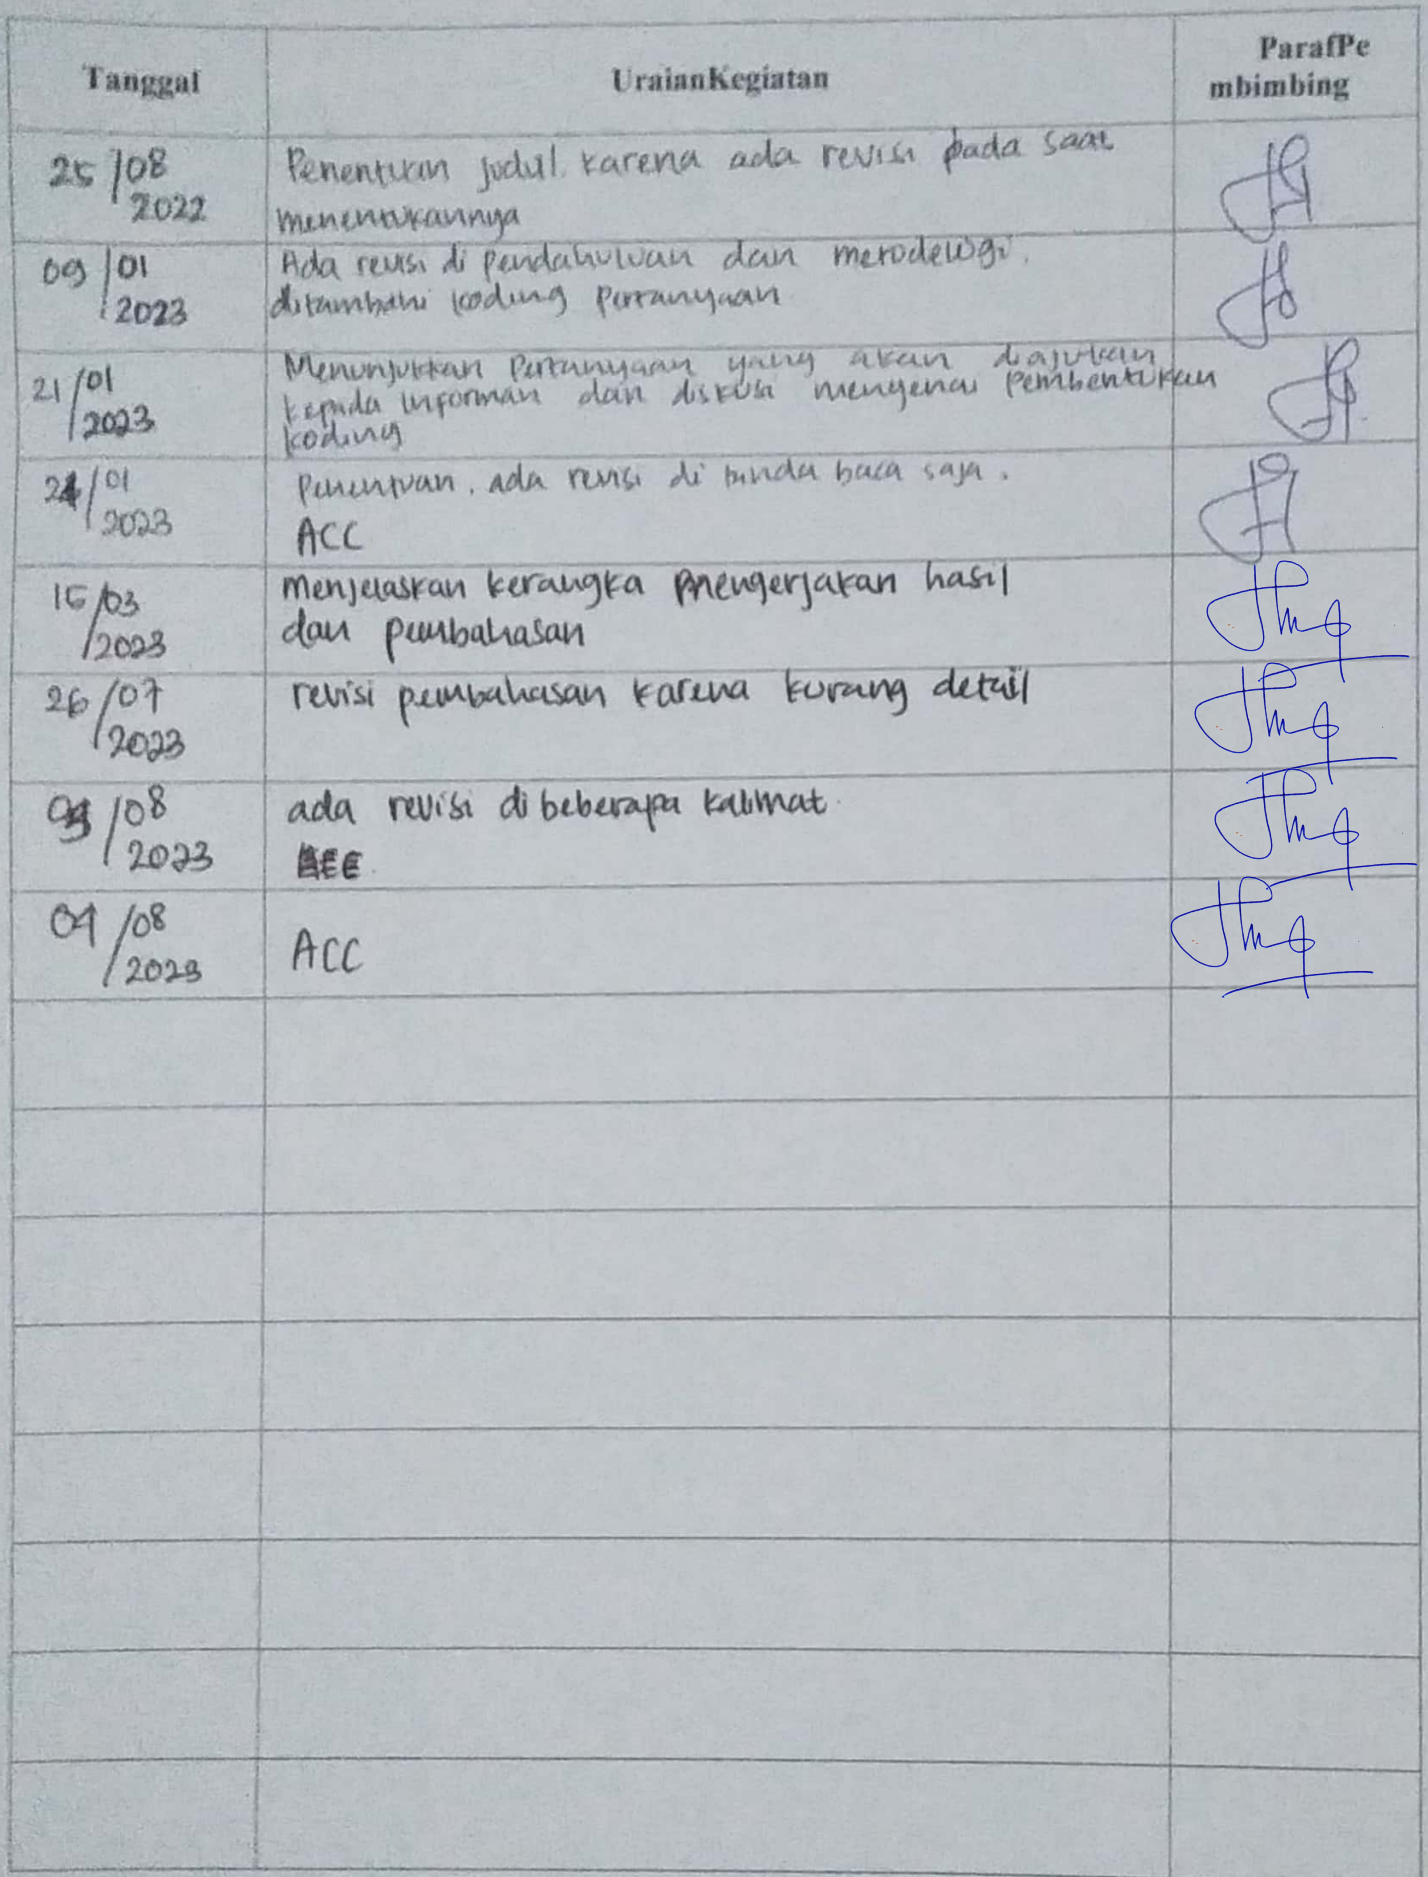 Tanggal UraianKegiatan ParafPe
mbimbing
25/08
2022
Penentuan judul. karena ada revisi pada saat
menentukannya
09/01
2023
Ada revisi di pendahuluan dan metodelogi.
ditambahi koding pertanyaan
21/01
2023
Menunjukkan Pertanyaan yang akan diajukan
kepada informan dan diskusi mengenai pembentukan
koding
24/01
2023
Penentuan. ada revisi di tanda baca saja.
ACC
15/03
2023
menjelaskan kerangka mengerjakan hasil
dan pembahasan
26/07
2023
revisi pembahasan karena kurang detail
/08
2023
ada revisi di beberapa kalimat.
04/08
2023
ACC